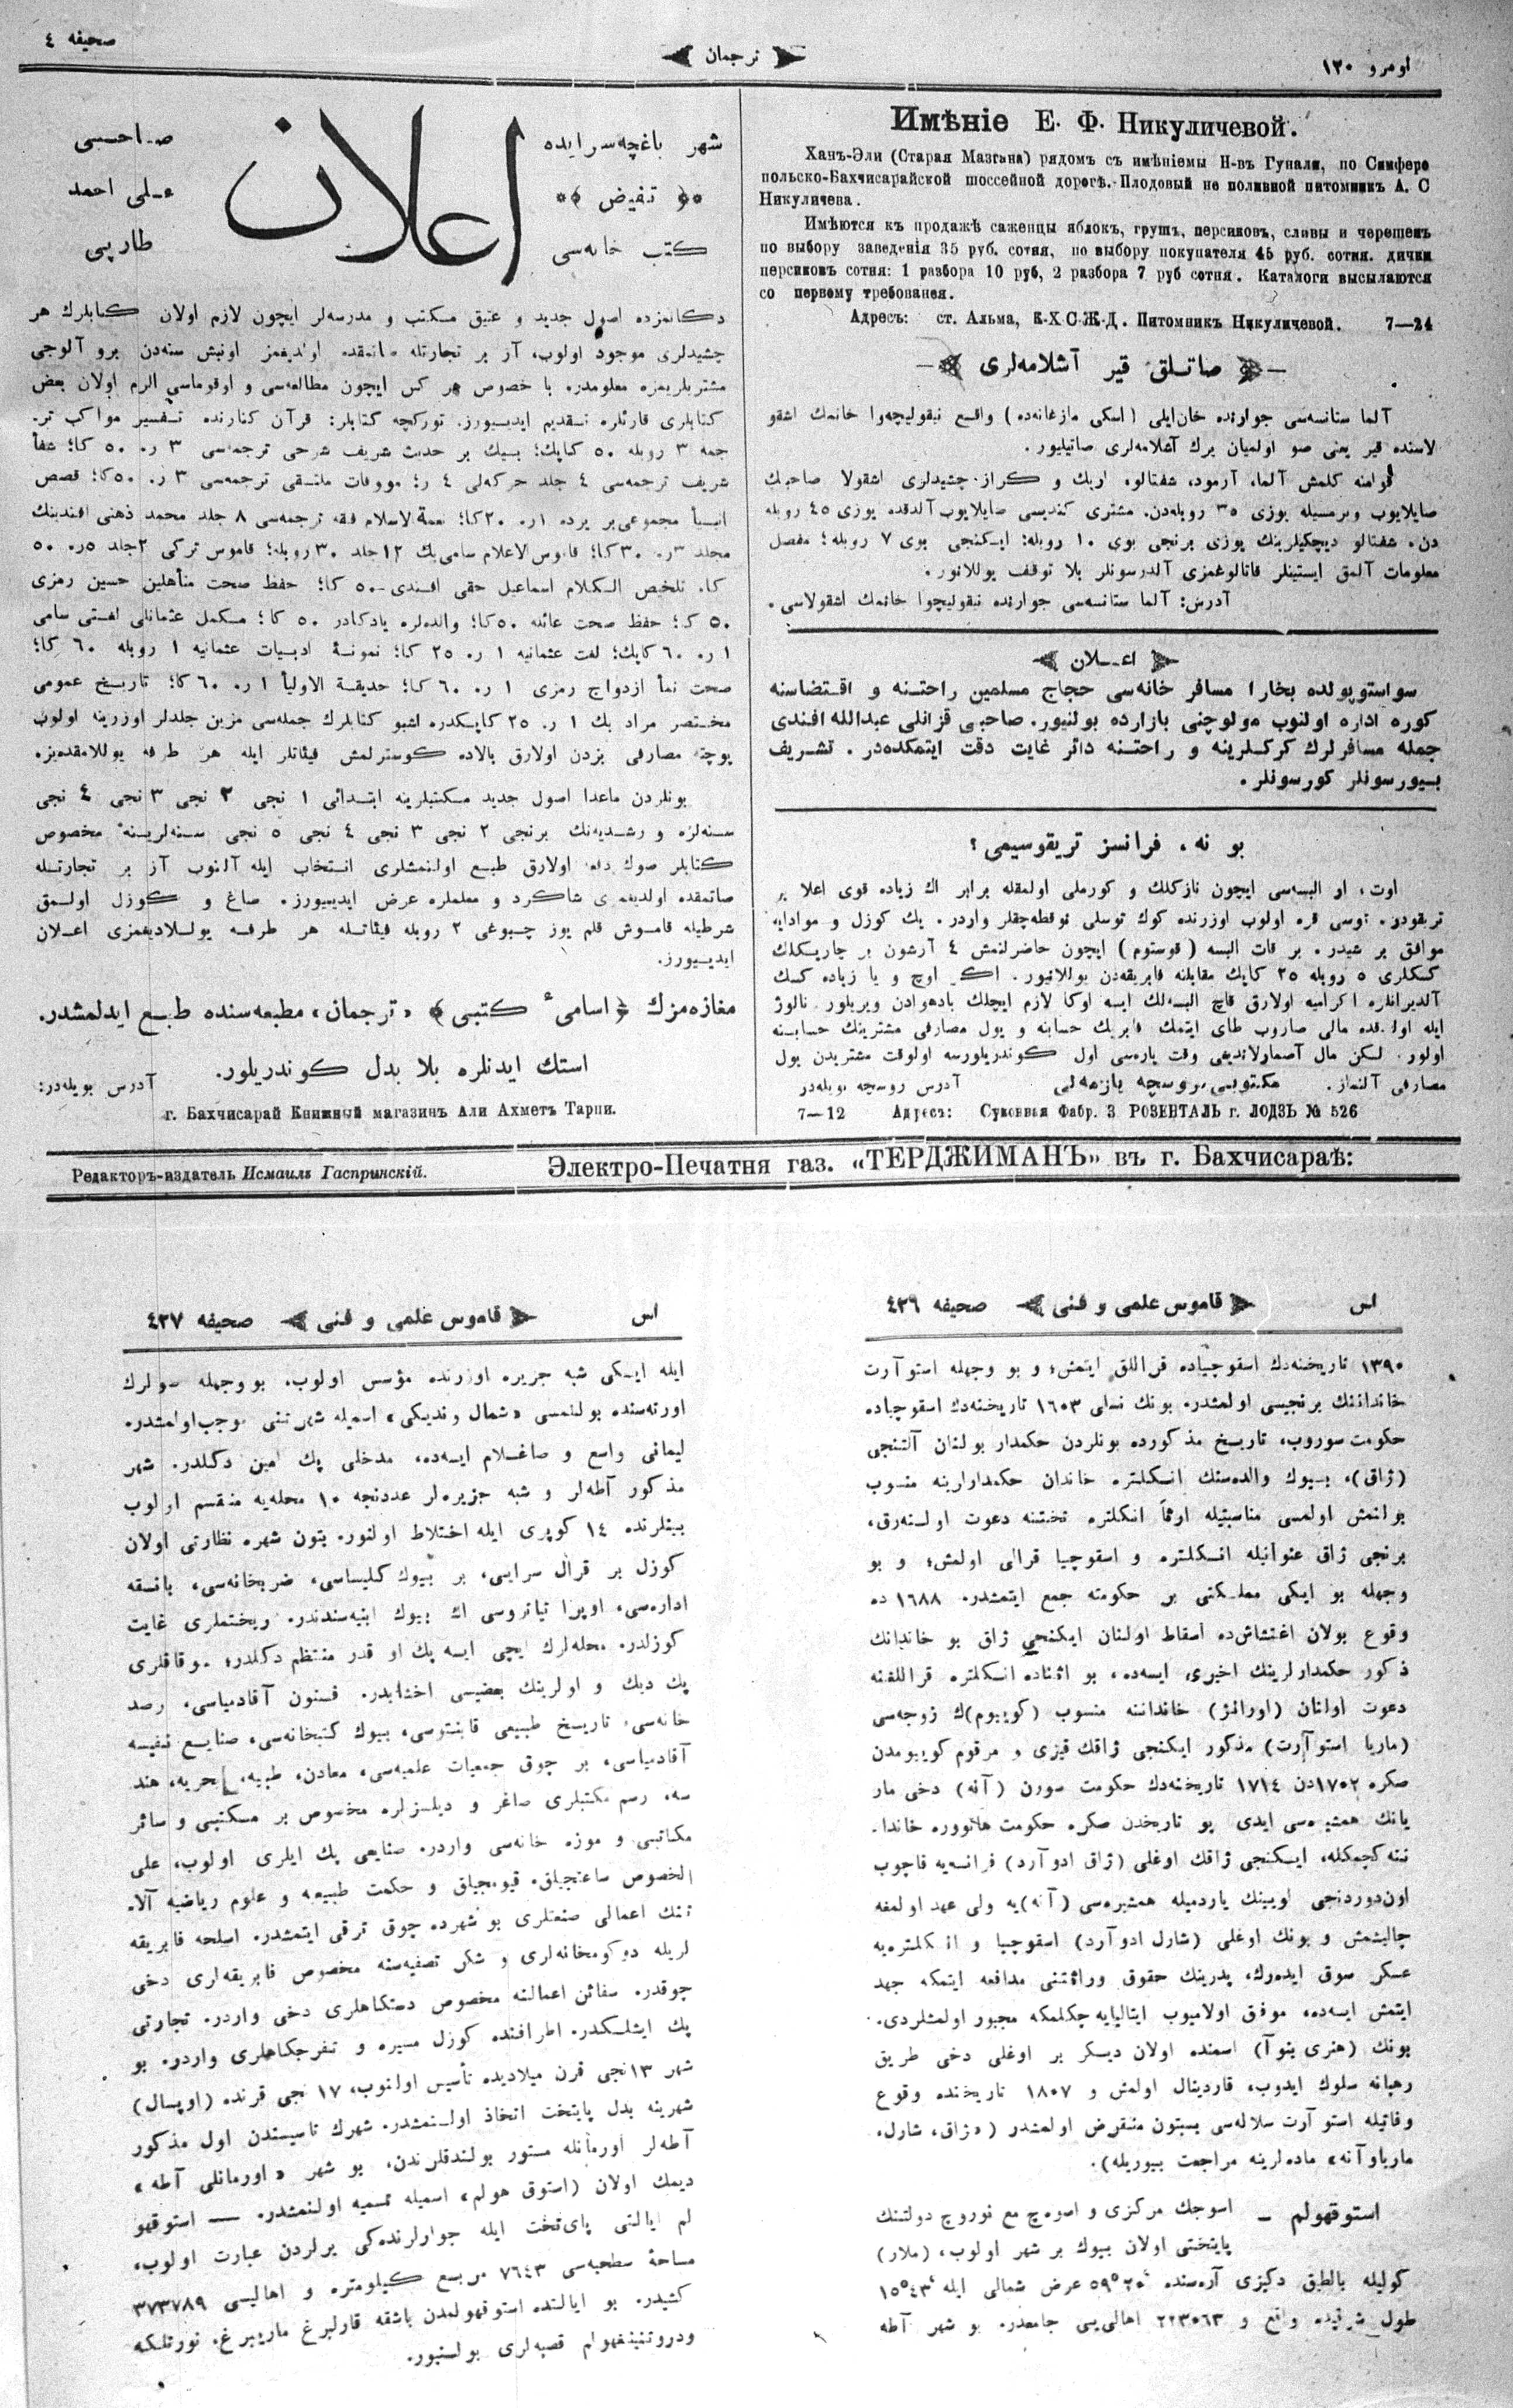 اومرو ١٢٠
ترجمان
صحيفه ٤
Имѣніе Е. Ф. Никуличевой.
Ханъ-Эли (Старая Мазгана) рядомъ съ имѣніемы Н-въ Гунали, по Симферо
польско-Бахчисарайской шоссейной дорогѣ. Плодовый не поливной питомникъ А. С
Никуличева.
Имѣются къ продажѣ саженцы яблокъ, грушъ, персиковъ, сливы и черешенъ
по выбору заведенія 35 руб. сотня, по выбору покупателя 45 руб. сотня. дички
персиковъ сотня: 1 разбора 10 руб, 2 разбора 7 руб сотня. Каталоги высылаются
со первому требованея.
Адресъ: ст. Альма, К-Х С. Ж. Д. Питомникъ Никуличевой. 7—24
صاتلق قير آشلامه‌لرى
آلما ستانسه‌سى جوارنده خان‌ايلى (اسكى مازغانه‌ده) واقع نيقوليچه‌وا خانمك اشقو
لاسنده قير يعنى صو اولميان يرك آشلامه‌لرى صاتيليور.
فرامنه كلمش آلما، آرمود، شفتالو، اريك و كراز چشيدلرى اشقولا صاحبك
صايلايوب ويرمسيله يوزى ٣٥ روبله‌دن، مشترى كنديسى صايلايوب آلدقده يوزى ٤٥ روبله
دن. شفتالو ديچكيلرينك يوزى برنجى بوى ١٠ روبله: ايكنجى بوى ٧ روبله؛ مفصل
معلومات آلمق ايستينلر قاتالوغمزى آلدرسونلر بلا توقف يوللانور.
آدرس: آلما ستانسه‌سى جوارنده نيقوليچوا خانمك اشقولاسى.
اعلان
سواستوپولده بخارا مسافر خانه‌سى حجاج مسلمين راحتنه و اقتضاسنه
كوره اداره اولنوب مولوچنى بازارده بولنيور. صاحبى قزانلى عبدالله افندى
جمله مسافرلرك كركلرينه و راحتنه دائر غايت دقت ايتمكده‌در. تشريف
بيورسونلر كورسونلر.
بو نه، فرانسز تريقوسيمى؟
اوت، او البسه‌سى ايچون نازكلك و كورملى اولمقله برابر اك زياده قوى اعلا بر
تريقودر. توسى قره اولوب اوزرنده كوك توسلى نوقطه‌چقلر واردر. پك كوزل و مودايه
موافق بر شيدر. بر قات البسه (قوستوم) ايچون حاضرلنمش ٤ آرشون بر چاريكلك
كسكلرى ٥ روبله ٢٥ كاپك مقابلنه فابريقه‌دن يوللانيور. اكر اوچ و يا زياده كسك
آلديرانلره اكراميه اولارق قاچ البسه‌لك ايسه اوكا لازم ايچلك بادهوادن ويريلور. نالوژ
ايله اولنقده مالى صاروب طاى ايتمك فابريك حسابنه و يول مصارفى مشترينك حسابنه
اولور. لكن مال آصمارلانديغى وقت يارمسى اول كوندريلورسه اولوقت مشتريدن يول
مصارفى آلنماز. مكتوبى روسچه يازمه‌لى آدرس روسچه بويله‌در
7—12 Адресъ: Суконная Фабр. З. РОЗЕНТАЛЬ г. ЛОДЗЬ № 526
شهر باغچه‌سرايده
تفيض
كتب خانه‌سى
اعلان
صاحبى
على احمد
طارپى
دكانمزده اصول جديد و عتيق مكتب و مدرسه‌لر ايچون لازم اولان كتابلرك هر
چشيدلرى موجود اولوب، آز بر تجارتله صاتمقده اولديغمز اونبش سنه‌دن برو آلوجى
مشتريلريمزه معلومدر. با خصوص هر كس ايچون مطالعه‌سى و اوقوماسى الزم اولان بعض
كتابلرى قارئلره تقديم ايديیورز. توركچه كتابلر: قرآن كنارنده تفسير مواكب تر-
جمه ٣ روبله ٥٠ كاپك؛ بيك بر حديث شريف شرحى ترجمه‌سى ٣ ر. ٥٠ كا؛ شفأ
شريف ترجمه‌سى ٤ جلد حركه‌لى ٤ ر؛ موفقات ملتقى ترجمه‌سى ٣ ر. ٥٠كا؛ قصص
انبيأ مجموعى بر يرده ١ر. ٢٠كا؛ نعمة لاسلام فقه ترجمه‌سى ٨ جلد محمد ذهنى افندينك
مجلد ٣ر. ٣٠كا؛ قاموس الاعلام سامى‌بك ١٢جلد ٣٠روبله؛ قاموس تركى ٢جلد ٥ر. ٥٠
كا. تلخيص الكلام اسماعيل حقى افندى ٥٠ كا؛ حفظ صحت متأهلين حسين رمزى
٥٠ ك؛ حفظ صحت عائله ٥٠كا؛ والده‌لره يادكادر ٥٠ كا؛ مكمل عثمانلى لغتى سامى
١ ر. ٦٠ كاپك؛ لغت عثمانيه ١ ر. ٢٥ كا؛ نمونهٔ ادبيات عثمانيه ١ روبله ٦٠ كا؛
صحت نمأ ازدواج رمزى ١ ر. ٦٠ كا؛ حديقة الاوليأ ١ ر. ٦٠ كا؛ تاريخ عمومى
مختصر مراد بك ١ ر. ٢٥ كاپكدره اشبو كتابلرك جمله‌سى مزين جلدلر اوزرينه اولوب
پوچته مصارفى بزدن اولارق بالاده كوسترلمش فيئاتلر ايله هر طرفه يوللامقده‌يز.
بونلردن ماعدا اصول جديد مكتبلرينه ابتدائى ١ نجى ٢ نجى ٣ نجى ٤ نجى
سنه‌لره و رشديه‌نك برنجى ٢ نجى ٣ نجى ٤ نجى ٥ نجى سنه‌لرينه مخصوص
كتابلر صوك دفعه اولارق طبع اولنمشلرى انتخاب ايله آلنوب آز بر تجارتله
صاتمقده اولديغمزى شاكرد و معلملره عرض ايديیورز. صاغ و كوزل اولمق
شرطيله قاموش قلم يوز چبوغى ٢ روبله فيئاتله هر طرفه يوللاديغمزى اعلان
ايديیورز.
مغازه‌مزك ﴿اسامىٔ كتبى﴾ «ترجمان» مطبعه‌سنده طبع ايدلمشدر.
استك ايدنلره بلا بدل كوندريلور. آدرس بويله‌در:
г. Бахчисарай Книжный магазинъ Али Ахметъ Тарпи.
Редакторъ-издатель Исмаилъ Гаспринскій.
Электро-Печатня газ. «ТЕРДЖИМАНЪ» въ г. Бахчисараѣ:
اس قاموس علمى و فنى صحيفه ٤٣٦
١٣٩٠ تاريخنه‌دك اسقوچياده قراللق ايتمش؛ و بو وجهله استوآرت
خانداننك برنجيسى اولمشدر. بونك نسلى ١٦٠٣ تاريخنه‌دك اسقوچياده
حكومت سوروب، تاريخ مذكورده بونلردن حكمدار بولنان آلتنجى
(ژاق)، بيوك والده‌سنك انكلتره خاندان حكمدارارينه منسوب
بولنمش اولمسى مناسبتيله ارثاً انكلتره تختنه دعوت اولنه‌رق،
برنجى ژاق عنوانيله انكلتره و اسقوچيا قرالى اولمش؛ و بو
وجهله بو ايكى مملكتى بر حكومته جمع ايتمشدر. ١٦٨٨ ده
وقوع بولان اغتشاش‌ده اسقاط اولنان ايكنجى ژاق بو خاندانك
ذكور حكمدارلرينك اخيرى ايسه‌ده، بو اثناده انكلتره قراللغنه
دعوت اولنان (اورانژ) خانداننه منسوب (كوييوم)ك زوجه‌سى
(ماريا استوآرت) مذكور ايكنجى ژاقك قيزى و مرقوم كوييومدن
صكره ١٧٠٢دن ١٧١٤ تاريخنه‌دك حكومت سورن (آنه) دخى مار
يانك همشيره‌سى ايدى بو تاريخدن صكره حكومت هانووره خاندا-
ننه كچمكله، ايكنجى ژاقك اوغلى (ژاق ادوآرد) فرانسه‌يه قاچوب
اون‌دوردنجى لوينك ياردميله همشيره‌سى (آنه)يه ولى عهد اولمغه
چاليشمش و بونك اوغلى (شارل ادوآرد) اسقوچيا و انكلتره‌يه
عسكر سوق ايده‌رك، پدرينك حقوق وراثتنى مدافعه ايتمكه جهد
ايتمش ايسه‌ده، موفق اولاميوب ايتاليايه چكلمكه مجبور اولمشلردى.
بونك (هنرى بنوآ) اسمنده اولان ديكر بر اوغلى دخى طريق
رهبانه سلوك ايدوب، قاردينال اولمش و ١٨٠٧ تاريخنده وقوع
وفاتيله استوآرت سلاله‌سى بسبتون منقرض اولمشدر («ژاق، شارل،
مارياوآنه» ماده‌لرينه مراجعت بيوريله).
استوقهولم — اسوجك مركزى و اسوج مع نوروج دولتنك
پايتختى اولان بيوك بر شهر اولوب، (ملار)
كوليله بالطق دكيزى آره‌سنده ٥٩°٢٠ عرض شمالى ايله ١٥°٤٣
طول شرقيده واقع و ٢٢٣٠٦٣ اهالىيى جامعدر. بو شهر آطه
اس قاموس علمى و فنى صحيفه ٤٣٧
ايله ايكى شبه جزيره اوزرنده مؤسس اولوب، بو وجهله صولرك
اورته‌سنده بولنمسى «شمال ونديكى» اسميله شهرتنى موجب‌اولمشدر.
ليمانى واسع و صاغلام ايسه‌ده، مدخلى پك امين دكلدر. شهر
مذكور آطه‌لر و شبه جزيره‌لر عددنجه ١٠ محله‌يه منقسم اولوب
بينلرنده ١٤ كوپرى ايله اختلاط اولنور. بتون شهره نظارتى اولان
كوزل بر قرال سرايى، بر بيوك كليساسى، ضربخانه‌سى، بانقه
اداره‌سى، اوپرا تياتروسى اك بيوك ابنيه‌سندندر. ريختملرى غايت
كوزلدر. محله‌لرك ايچى ايسه پك او قدر منتظم دكلدر؛ سوقاقلرى
پك ديك و اولرينك بعضيسى اخشابدر. فنون آقادمياسى، رصد
خانه‌سى، تاريخ طبيعى قابنتوسى، بيوك كتبخانه‌سى، صنايع نفيسه
آقادمياسى، بر چوق جمعيات علميه‌سى، معادن، طبيه، بحريه، هند
سه، رسم مكتبلرى صاغر و ديلسزلره مخصوص بر مكتبى و سائر
مكاتبى و موزه خانه‌سى واردر. صنايعى پك ايلرى اولوب، على
الخصوص ساعتجيلق، قيومجيلق و حكمت طبيعيه و علوم رياضيه آلا-
تنك اعمالى صنعتلرى بو شهرده چوق ترقى ايتمشدر. اسلحه فابريقه
لريله دوكومخانه‌لرى و شكر تصفيه‌سنه مخصوص فابريقه‌لرى دخى
چوقدر. سفائن اعمالنه مخصوص دستكاهلرى دخى واردر. تجارتى
پك ايشلكدر. اطرافنده كوزل مسيره و تفرجكاهلرى واردر. بو
شهر ١٣نجى قرن ميلاديده تأسيس اولنوب، ١٧ نجى قرنده (اوپسال)
شهرينه بدل پايتخت اتخاذ اولنمشدر. شهرك تاسيسندن اول مذكور
آطه‌لر اورمانله مستور بولندقلرندن، بو شهر «اورمانلى آطه»
ديمك اولان (استوق هولم» اسميله تسميه اولنمشدر. — استوقهو
لم ايالتى پاى‌تخت ايله جوارلرنده‌كى يرلردن عبارت اولوب،
مساحهٔ سطحيه‌سى ٧٦٤٣ مربع كيلومتره و اهاليسى ٣٧٣٧٨٩
كشيدر. بو ايالتده استوقهولمدن باشقه قارلبرغ ماريبرغ، نورتلكه
ودروتنينغهولم قصبه‌لرى بولنيور.